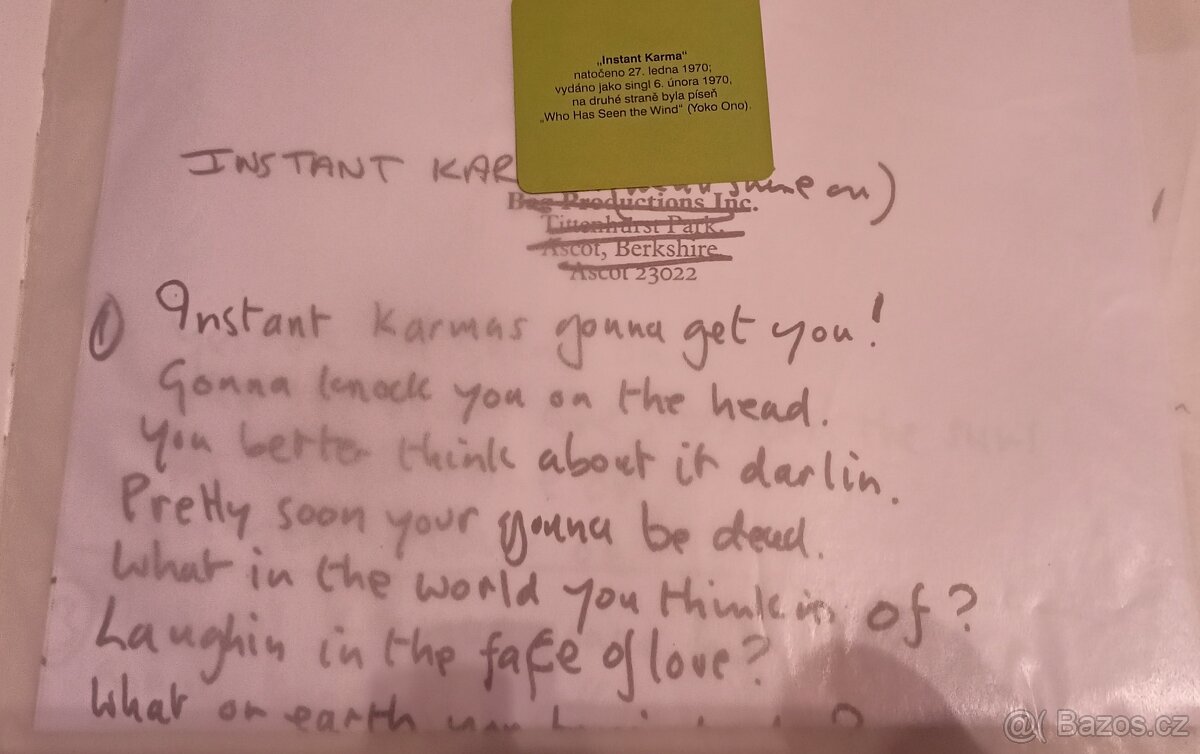 „Instant Karma"
natočeno 27. ledna 1970;
vydáno jako singl 6. února 1970,
na druhé straně byla píseň
„Who Has Seen the Wind" (Yoko Ono).
INSTANT KAR
shine on)
Bag Productions Inc.
Tittenhurst Park.
Ascot, Berkshire
Ascot 23022
① Instant Karmas gonna get you!
Gonna knock you on the head.
You better think about it darlin.
Pretty soon your gonna be dead.
What in the world you thinkin of?
Laughin in the face of love?
What on earth
@( Bazos.cz